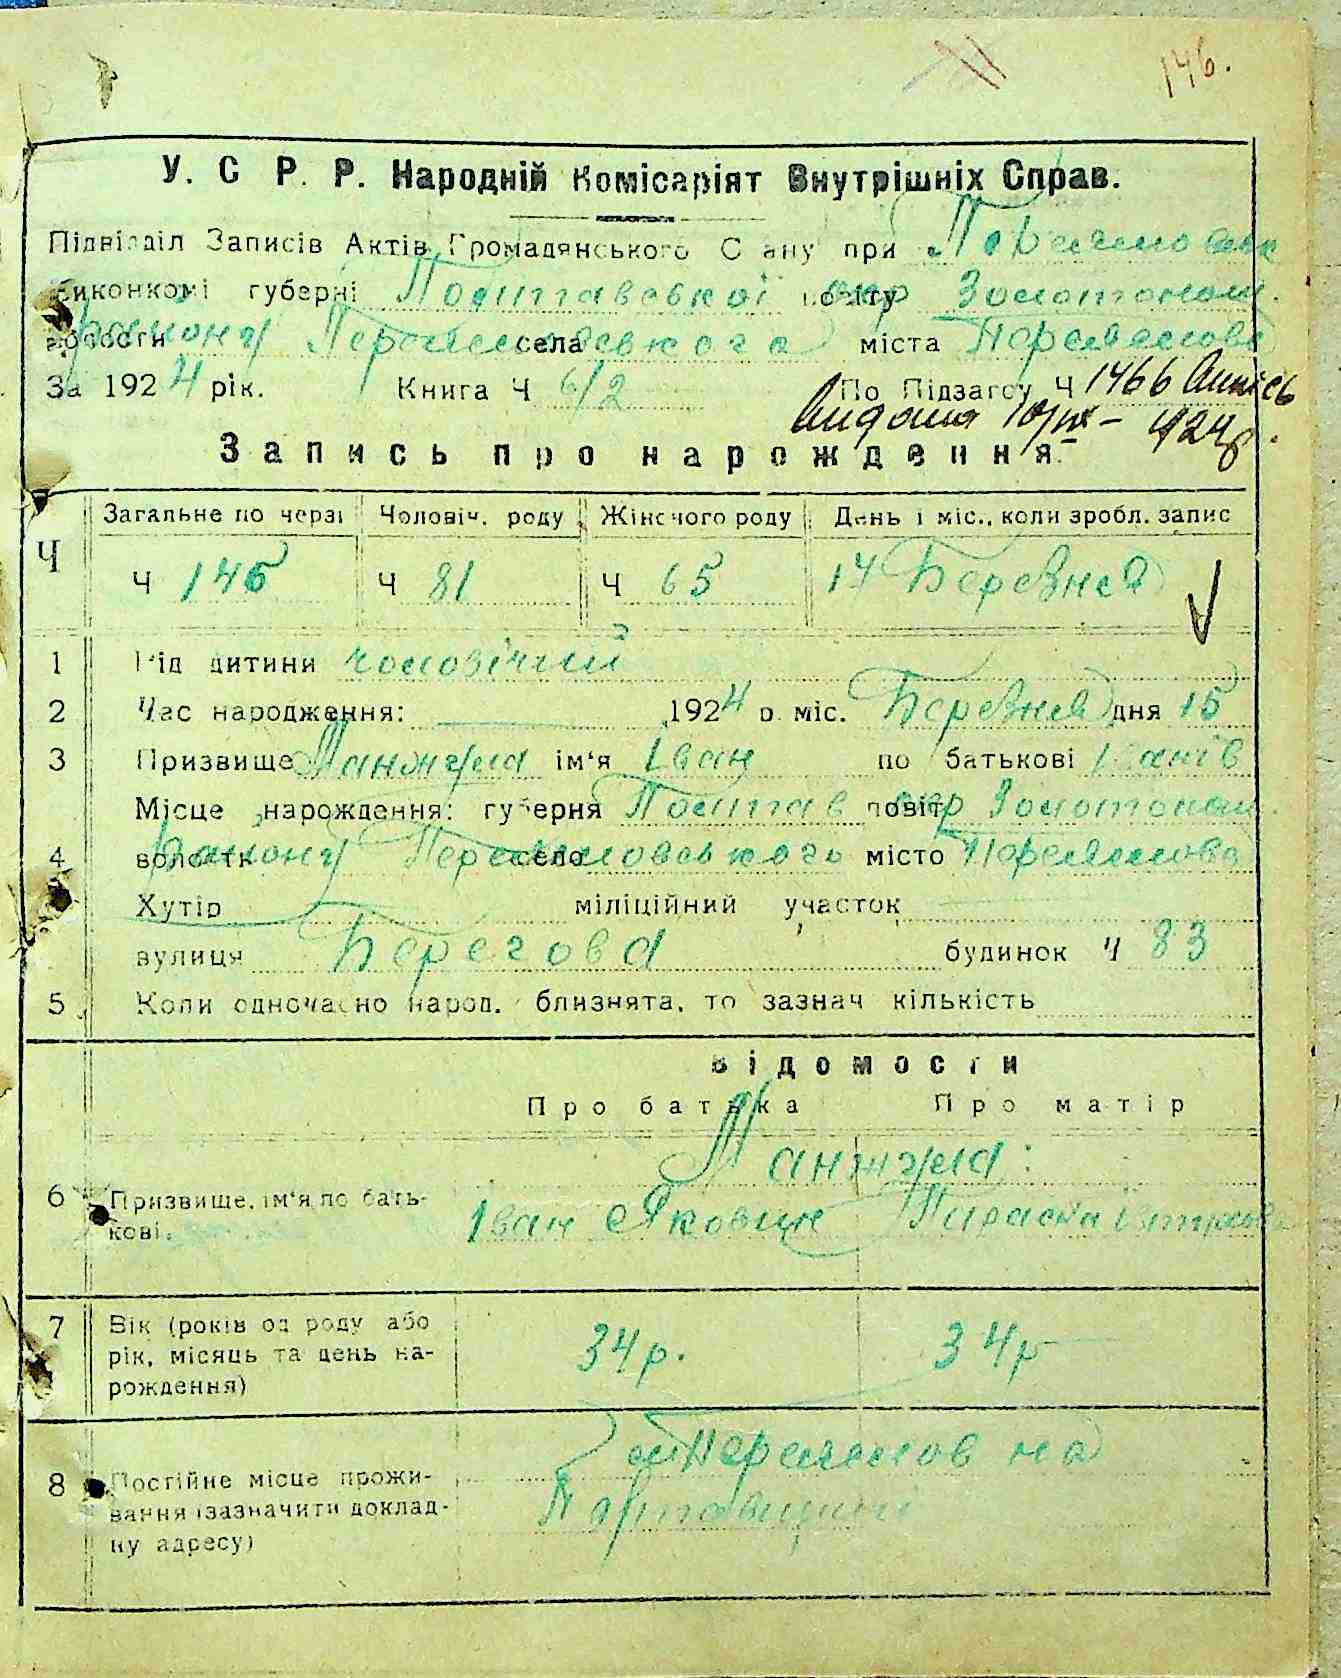 146.
У. С. Р. Р. Народній Комісаріят Внутрішніх Справ.
Підвідділ Записів Актів Громадянського Стану при
виконкомі губерні Полтавської окр Золотонош.
району села міста Переяслові
За 1924 рік. Книга Ч 6/2 По Підзагсу Ч 1466
Видана 10/IX – 924р.
Запись про нарождення.
Загальне по черзі Чоловіч. роду Жіночого роду День і міс., коли зробл. запис
Ч Ч 146 Ч 81 Ч 65 17 Березня
1 Рід дитини чоловічий
2 Час народження: 1924 р. міс. Березня дня 15
3 Призвище Манжула ім'я Іван по батькові Іванів
Місце нарождення: губерня Полтав повіт окр Золотонош.
4 волость району село Переяславського місто Переяслове
Хутір міліційний участок
вулиця Берегова будинок Ч 83
5 Коли одночасно народ. близнята, то зазнач кількість
Відомости
Про батька Про матір
Манжула:
6 Призвище, ім'я по батькові.
Іван Якович Параска
7 Вік (років од роду або рік, місяць та день нарождення)
34р. 34р
8 Постійне місце проживання (зазначити докладну адресу)
м Переяслов на
Полтавщині